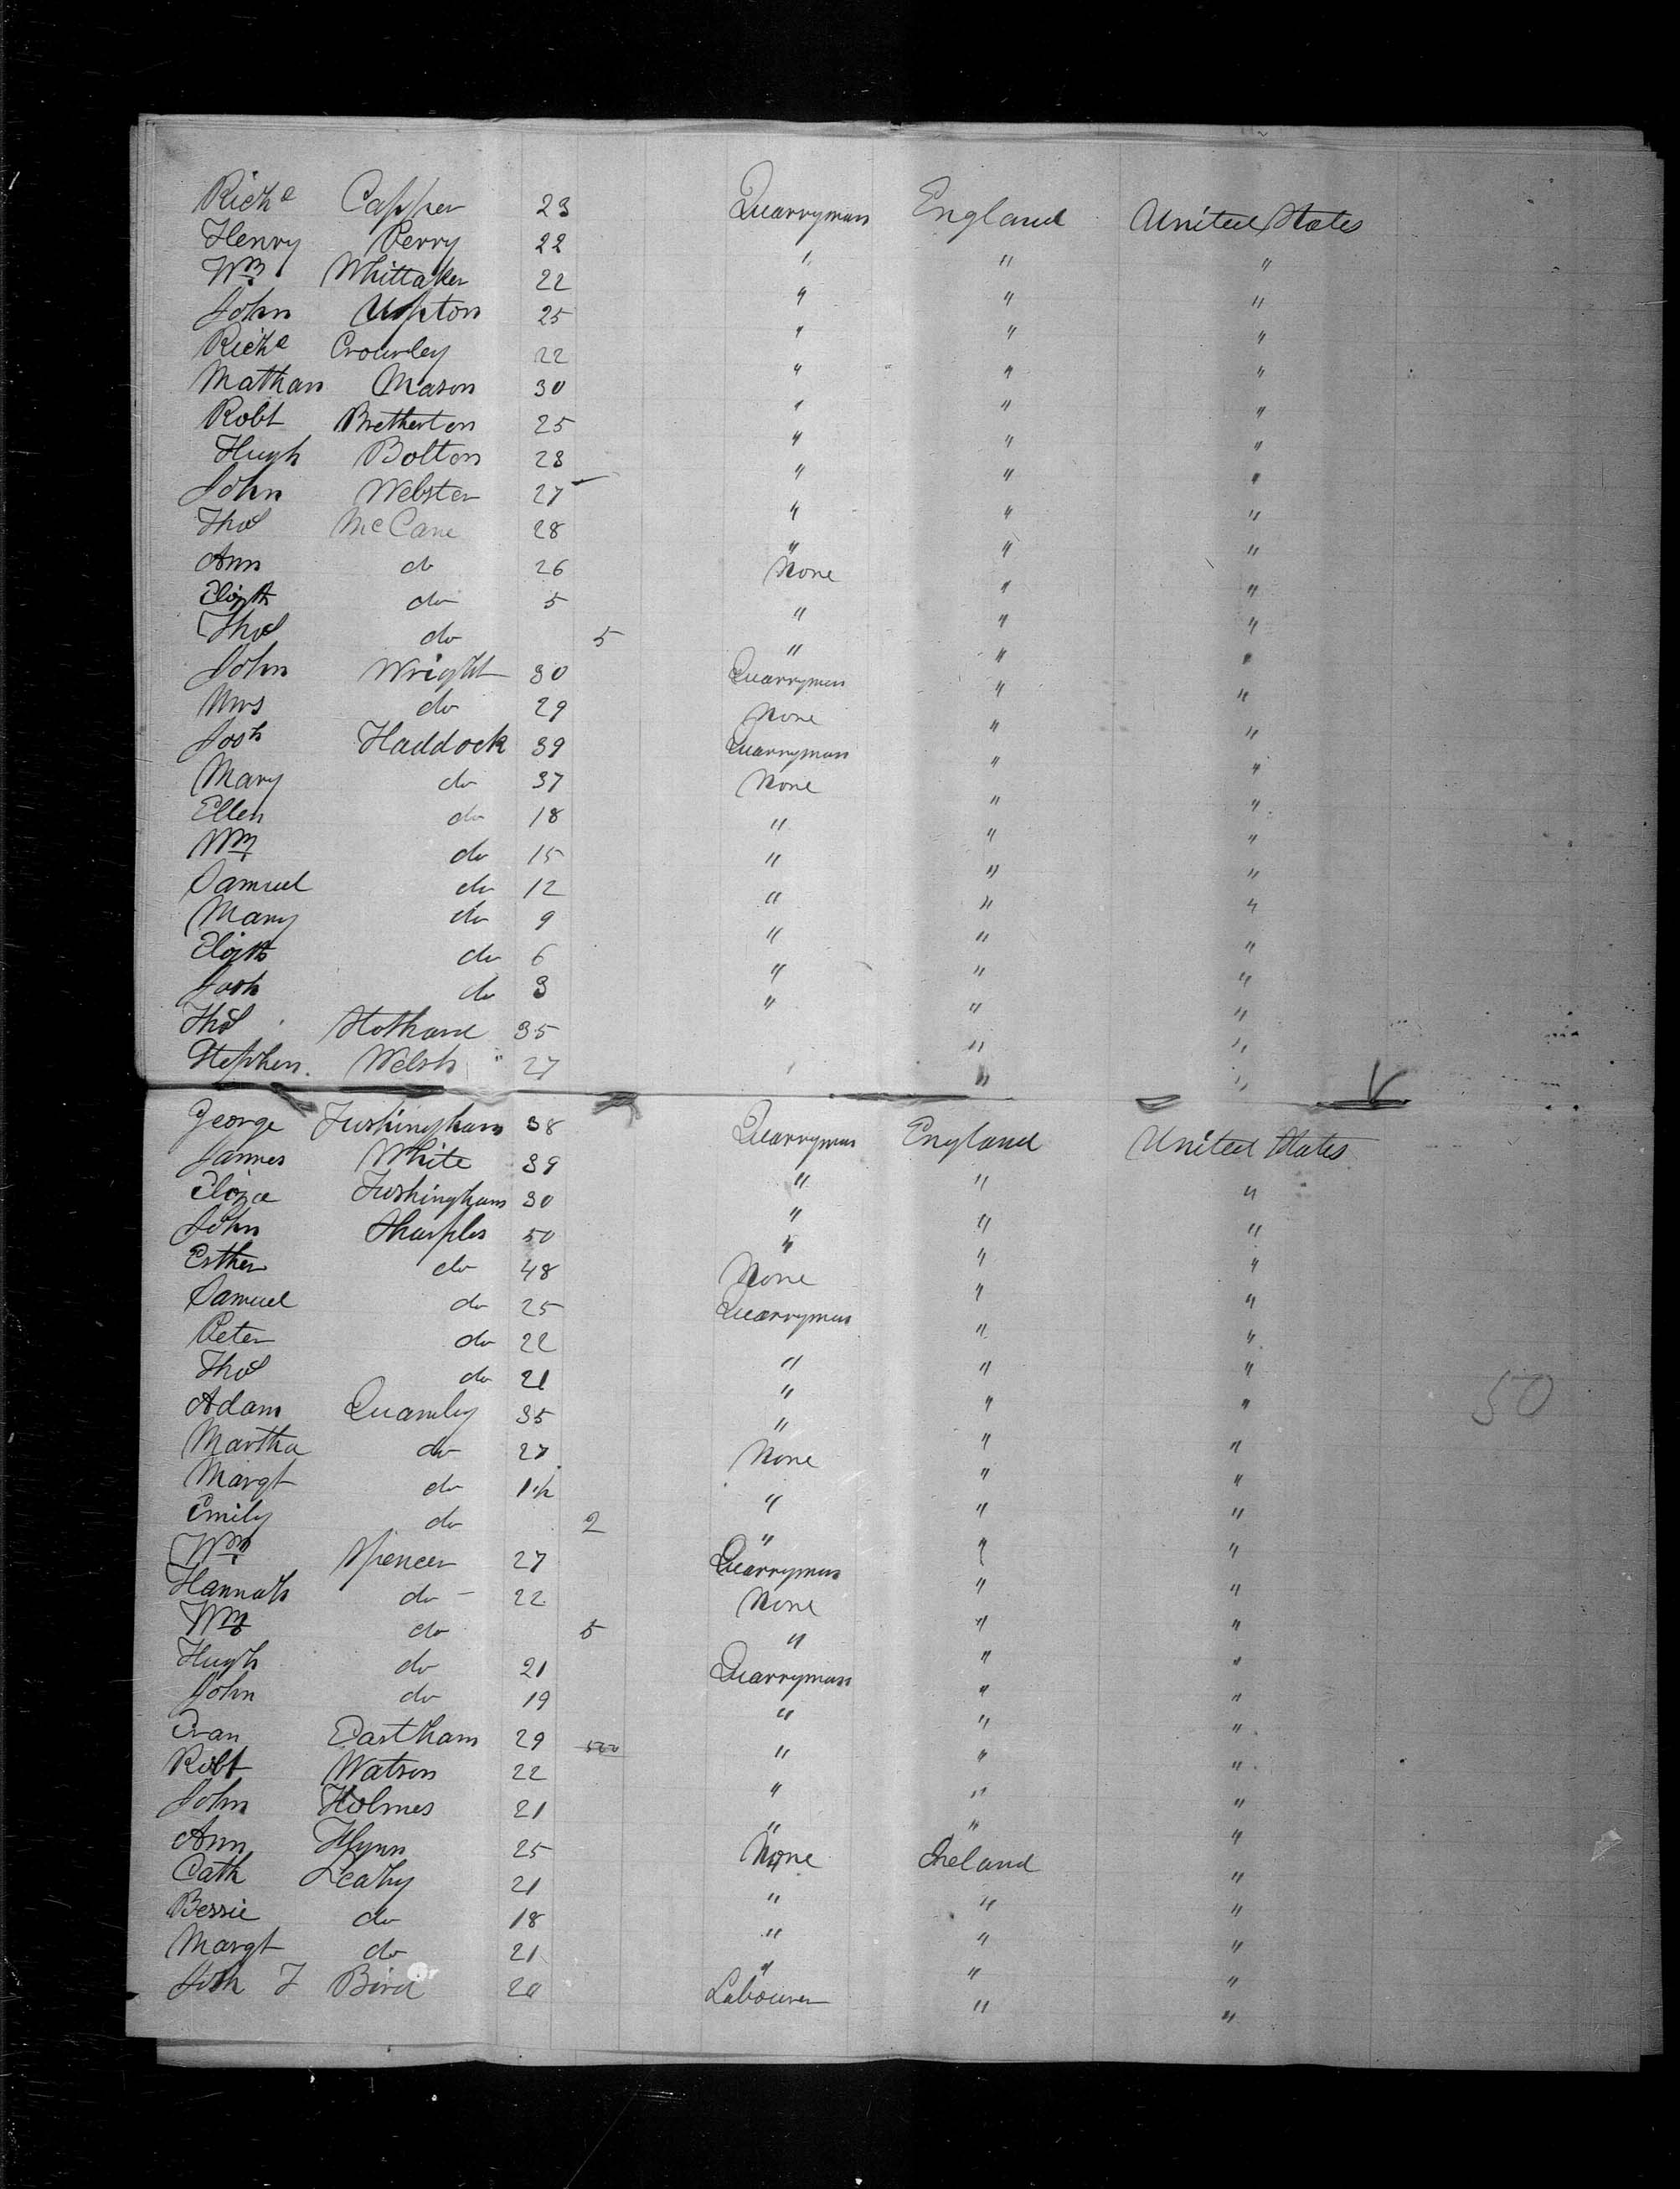 Richd Capper 23 Quarryman England United States
Henry Perry 22 " " "
Wm Whittaker 22 " " "
John Upton 25 " " "
Richd Crowley 22 " " "
Nathan Mason 30 " " "
Robt Bretherton 25 " " "
Hugh Bolton 23 " " "
John Webster 27 " " "
Thos McCane 28 " " "
Ann do 26 None " "
Elizth do 5 " " "
Thos do 5 " " "
John Wright 30 Quarryman " "
Mrs do 29 None " "
Josh Haddock 39 Quarryman " "
Mary do 37 None " "
Ellen do 18 " " "
Wm do 15 " " "
Samuel do 12 " " "
Mary do 9 " " "
Elizth do 6 " " "
Josh do 3 " " "
Thos Stothard 35 " "
Stephen Welsh " 27 " " "
George Tushingham 38 Quarryman England United States
James White 39 " " "
Eliza Tushingham 30 " " "
John Sharples 50 " " "
Esther do 48 None " "
Samuel do 25 Quarryman " "
Peter do 22 " " "
Thos do 21 " " "
Adam Quamby 35 " " "
50
Martha do 27 None " "
Margt do 1½ " " "
Emily do 2 " " "
Wm Spencer 27 Quarryman " "
Hannah do 22 None " "
Wm do 5 " " "
Hugh do 21 Quarryman " "
John do 19 " " "
Evan Eastham 29 " " "
Robt Watson 22 " " "
John Holmes 21 " " "
Ann Flynn 25 None Ireland "
Cath Leahy 21 " " "
Bessie do 18 " " "
Margt do 21 " " "
Bird Labourer " "